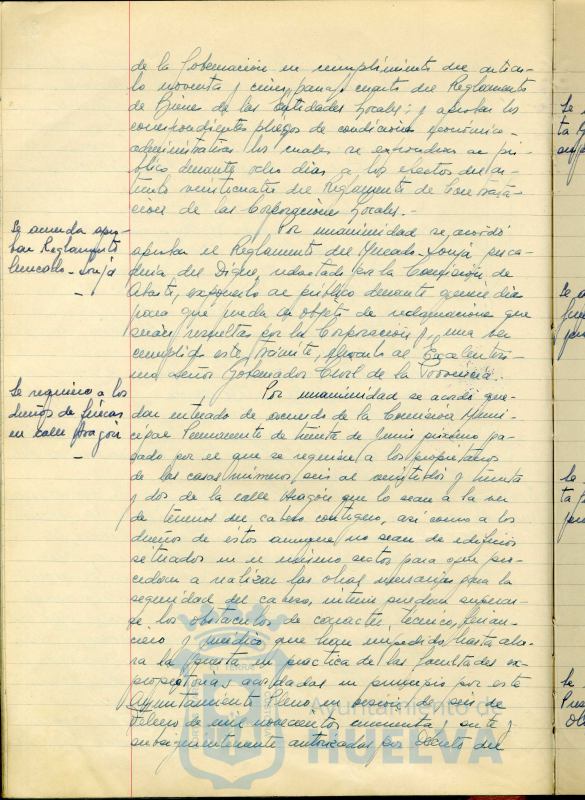 de la Gobernación en cumplimiento del artícu-
lo noventa y cinco, parrafo cuarto del Reglamento
de Bienes de las Entidades Locales; y aprobar los
correspondientes pliegos de condiciones económico-
administrativas los cuales se expondrán al pú-
blico durante ocho días a los efectos del ar-
tículo veinticuatro del Reglamento de Contrata-
ciones de las Corporaciones Locales.-
Se acuerda apro-
bar Reglamento
Mercado-Lonja
Por unanimidad se acordó
aprobar el Reglamento del Mercado-Lonja, pesca-
dería del Dique, redactado por la Comisión de
Abastos, exponerlo al público durante quince días
para que pueda ser objeto de reclamaciones que
serán resueltas por la Corporación y, una vez
cumplido este trámite, elevarlo al Excelentísi-
mo Señor Gobernador Civil de la Provincia.
Se requiera a los
dueños de fincas
en calle Aragón
Por unanimidad se acordó que-
dar enterado de acuerdo de la Comisión Muni-
cipal Permanente de treinta de Junio próximo pa-
sado por el que se requiere a los propietarios
de las casas números seis al veintidós y treinta
y dos de la calle Aragón que lo sean a la vez
de terrenos del cabezo contiguo, así como a los
dueños de éstos aunque no sean de edificios
situados en el mismo sector para que pro-
cedan a realizar las obras necesarias para la
seguridad del cabezo, interin puedan superar-
se los obstáculos de carácter técnico, finan-
ciero y jurídico que han impedido hasta aho-
ra la puesta en práctica de las facultades ex-
propiatorias acordadas en principio por este
Ayuntamiento Pleno en sesión de seis de
Febrero de mil novecientos cincuenta y siete y
subsiguientemente autorizadas por Decreto del
Ayuntamiento de
HUELVA